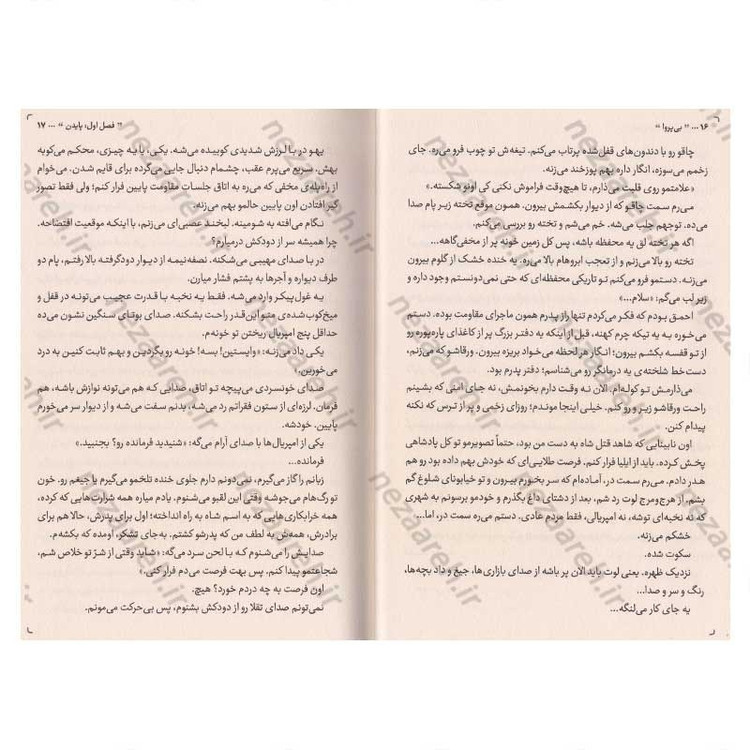 ۱۶ ... " بی‌پروا "
چاقو رو با دندون‌های قفل‌شده پرتاب می‌کنم. تیغه‌ش تو چوب فرو می‌ره. جای
زخمم می‌سوزه، انگار داره بهم پوزخند می‌زنه.
«علامتمو روی قلبت می‌ذارم، تا هیچ‌وقت فراموش نکنی کی اونو شکسته.»
می‌رم سمت چاقو که از دیوار بکشمش بیرون. همون موقع تخته زیر پام صدا
می‌ده. توجهم جلب می‌شه. خم می‌شم و تخته رو بررسی می‌کنم.
اگه هر تخته لق یه محفظه باشه، پس کل زمین خونه پر از مخفی‌گاهه...
تخته رو بالا می‌زنم و از تعجب ابروهام بالا می‌ره. یه خنده خشک از گلوم بیرون
می‌زنه. دستمو فرو می‌کنم تو تاریکی محفظه‌ای که حتی نمی‌دونستم وجود داره و
زیر لب می‌گم: «سلام...»
احمق بودم که فکر می‌کردم تنها راز پدرم همون ماجرای مقاومت بوده. دستم
می‌خوره به یه تیکه چرم کهنه. قبل از اینکه یه دفتر بزرگ پر از کاغذای پاره‌پوره رو
از تو قفسه بکشم بیرون؛ انگار هر لحظه می‌خواد بریزه بیرون. ورقاشو که می‌زنم،
دست خط شلخته‌ی یه درمانگر رو می‌شناسم؛ دفتر پدرم بود.
می‌ذارمش تو کوله‌ام. الان نه وقت دارم بخونمش، نه جای امنی که بشینم
راحت ورقاشو زیر و رو کنم. خیلی اینجا موندم؛ روزای زخمی و پر از ترس که نکنه
پیدام کنن.
اون نابینایی که شاهد قتل شاه به دست من بود، حتماً تصویرمو تو کل پادشاهی
پخش کرده. باید از ایلیا فرار کنم. فرصت طلایی‌ای که خودش بهم داده بود رو هم
هدر دادم. می‌رم سمت در، آماده‌ام که سر بخورم بیرون و تو خیابونای شلوغ گم
بشم. از هرج‌ومرج لوت رد شم، بعد از دشتای داغ بگذرم و خودمو برسونم به شهری
که نه نخبه‌ای توشه، نه امپریالی، فقط مردم عادی. دستم می‌ره سمت در، اما...
خشکم می‌زنه.
سکوت شده.
نزدیک ظهره. یعنی لوت باید الان پر باشه از صدای بازاری‌ها، جیغ و داد بچه‌ها،
رنگ و سر و صدا...
یه جای کار می‌لنگه...
" فصل اول: پایدن " ... ۱۷
یهو در با لرزش شدیدی کوبیده می‌شه. یکی، یا یه چیزی، محکم می‌کوبه
بهش. سریع می‌پرم عقب، چشمام دنبال جایی می‌گرده برای قایم شدن. می‌خوام
از راه‌پله‌ی مخفی که می‌ره به اتاق جلسات مقاومت پایین فرار کنم؛ ولی فقط تصور
گیر افتادن اون پایین حالمو بهم می‌زنه.
نگام می‌افته به شومینه. لبخند عصبی‌ای می‌زنم، با اینکه موقعیت افتضاحه.
چرا همیشه سر از دودکش درمیارم؟
در با صدای مهیبی می‌شکنه. نصفه‌نیمه از دیوار دودگرفته بالا رفتم، پام دو
طرف دیواره و آجرها به پشتم فشار میارن.
یه غول‌پیکر وارد می‌شه. فقط یه نخبه با قدرت عجیب می‌تونه در قفل و
میخ‌کوب‌شده‌ی منو این‌قدر راحت بشکنه. صدای بوتای سنگین نشون می‌ده
حداقل پنج امپریال ریختن تو خونه‌م.
یکی داد می‌زنه: «وایستین! بسه! خونه رو بگردین و بهم ثابت کنین به درد
می‌خورین.»
صدای خونسردی می‌پیچه تو اتاق، صدایی که هم می‌تونه نوازش باشه، هم
فرمان. لرزه‌ای از ستون فقراتم رد می‌شه، بدنم سفت می‌شه و از دیوار سر می‌خورم
پایین. خودشه.
یکی از امپریال‌ها با صدای آرام می‌گه: «شنیدید فرمانده رو؟ بجنبید.»
فرمانده...
زبانم را گاز می‌گیرم، نمی‌دونم دارم جلوی خنده تلخمو می‌گیرم یا جیغم رو. خون
تو رگ‌هام می‌جوشه وقتی این لقبو می‌شنوم. یادم میاره همه شرارت‌هایی که کرده،
همه خرابکاری‌هایی که به اسم شاه به راه انداخته؛ اول برای پدرش، حالا هم برای
برادرش، همه‌ش به لطف من که پدرشو کشتم. به‌جای تشکر، اومده که بکشه‌م.
صدایش را می‌شنوم که با لحن سرد می‌گه: «شاید وقتی از شرّ تو خلاص شم،
شجاعتمو پیدا کنم. پس بهت فرصت می‌دم فرار کنی.»
اون فرصت به چه دردم خورد؟ هیچ.
نمی‌تونم صدای تقلا رو از دودکش بشنوم، پس بی‌حرکت می‌مونم.
nezaareh.ir